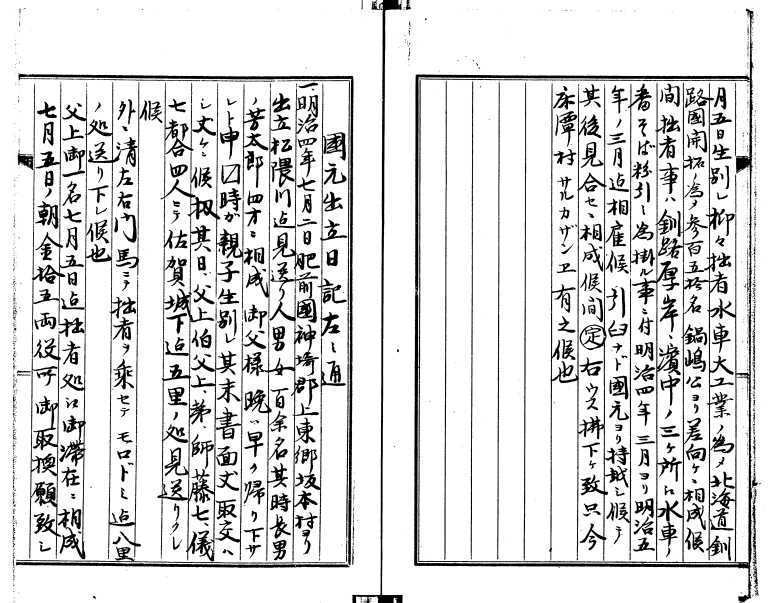 月五日生別レ抑々拙者水車大工業ノ為メ北海道釧
路國開拓ノ為メ參百五拾名鍋嶋公ヨリ差向ケニ相成候
間拙者事ハ釧路厚岸濱中ノ三ケ所ニ水車ノ
番そば粉引シ為掛ル事ニ付明治四年三月ヨリ明治五
年ノ三月迠相雇候引臼ナド國元ヨリ持越シ候テ
其後見合セニ相成候間㊡右ウス拂下ケ致只今
床潭村サルカザンエ有之候也
國元出立日記左ニ通
一、明治四年七月二日肥前國神埼郡上東郷坂本村ヨリ
出立松隈川迠見送リ人男女百余名其時長男
ノ芳太郎四才ニ相成御父様晩ハ早ク帰リ下サ
レト申□時が親子生別レ其末書面丈取交ハ
シ丈ケニ候扨其日ハ父上伯父上ト弟ト師ト藤七ト儀
七都合四人ニテ佐賀城下迠五里ノ処見送リクレ
候
外ニ清左右門馬ニテ拙者ヲ乘セテモロドミ迠八里
ノ処送リ下レ候也
父上御一名七月五日迠拙者処ニ御滞在ニ相成
七月五日ノ朝金拾五両役所御取換願致シ